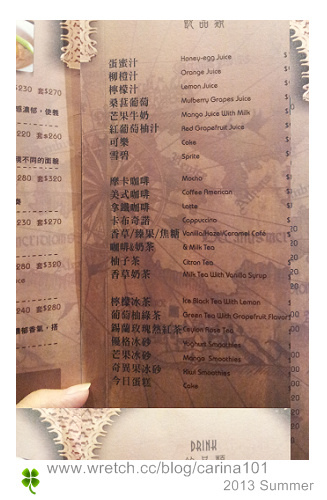 飲品類
蛋蜜汁 Honey-egg Juice
柳橙汁 Orange Juice
檸檬汁 Lemon Juice
桑葚葡萄 Mulberry Grapes Juice
芒果牛奶 Mango Juice With Milk
紅葡萄柚汁 Red Grapefruit Juice
可樂 Coke
雪碧 Sprite
摩卡咖啡 Mocha
美式咖啡 Coffee American
拿鐵咖啡 Latte
卡布奇諾 Cappuccino
香草/臻果/焦糖 Vanilla/Hazel/Caramel Café
咖啡&奶茶 & Milk Tea
柚子茶 Citron Tea
香草奶茶 Milk Tea With Vanilla Syrup
檸檬冰茶 Ice Black Tea With Lemon
葡萄柚綠茶 Green Tea With Grapefruit Flavor
錫蘭玫瑰然紅茶 Ceylon Rose Tea
優格冰砂 Yoghurt Smoothies
芒果冰砂 Mango Smoothies
奇異果冰砂 Kiwi Smoothies
今日蛋糕 Cake
$230 套$270
$220 套$260
$280 套$320
$280 套$320
$240 套$280
DRINK
www.wretch.cc/blog/carina101
2013 Summer